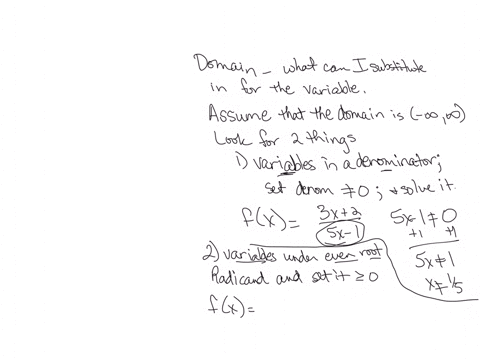 Domain - what can I substitute
in for the variable.
Assume that the domain is (-∞,∞)
Look for 2 things
1) variables in a denominator;
set denom ≠0 ; + solve it.
f(x)= 3x+2
5x-1
5x-1≠0
+1 +1
5x≠1
x≠1/5
2) variables under even root
Radicand and set it ≥0
f(x)=